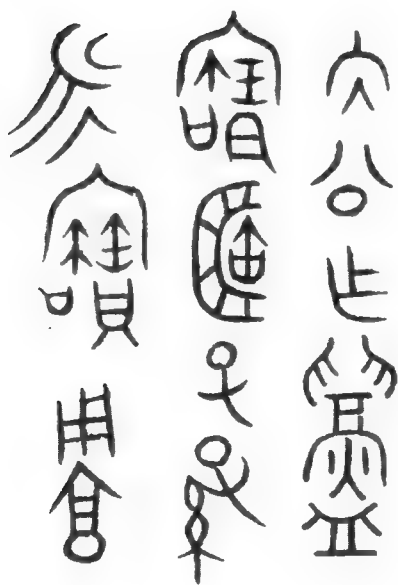 大公乍鑄
寶匩子孫
永寶用亯